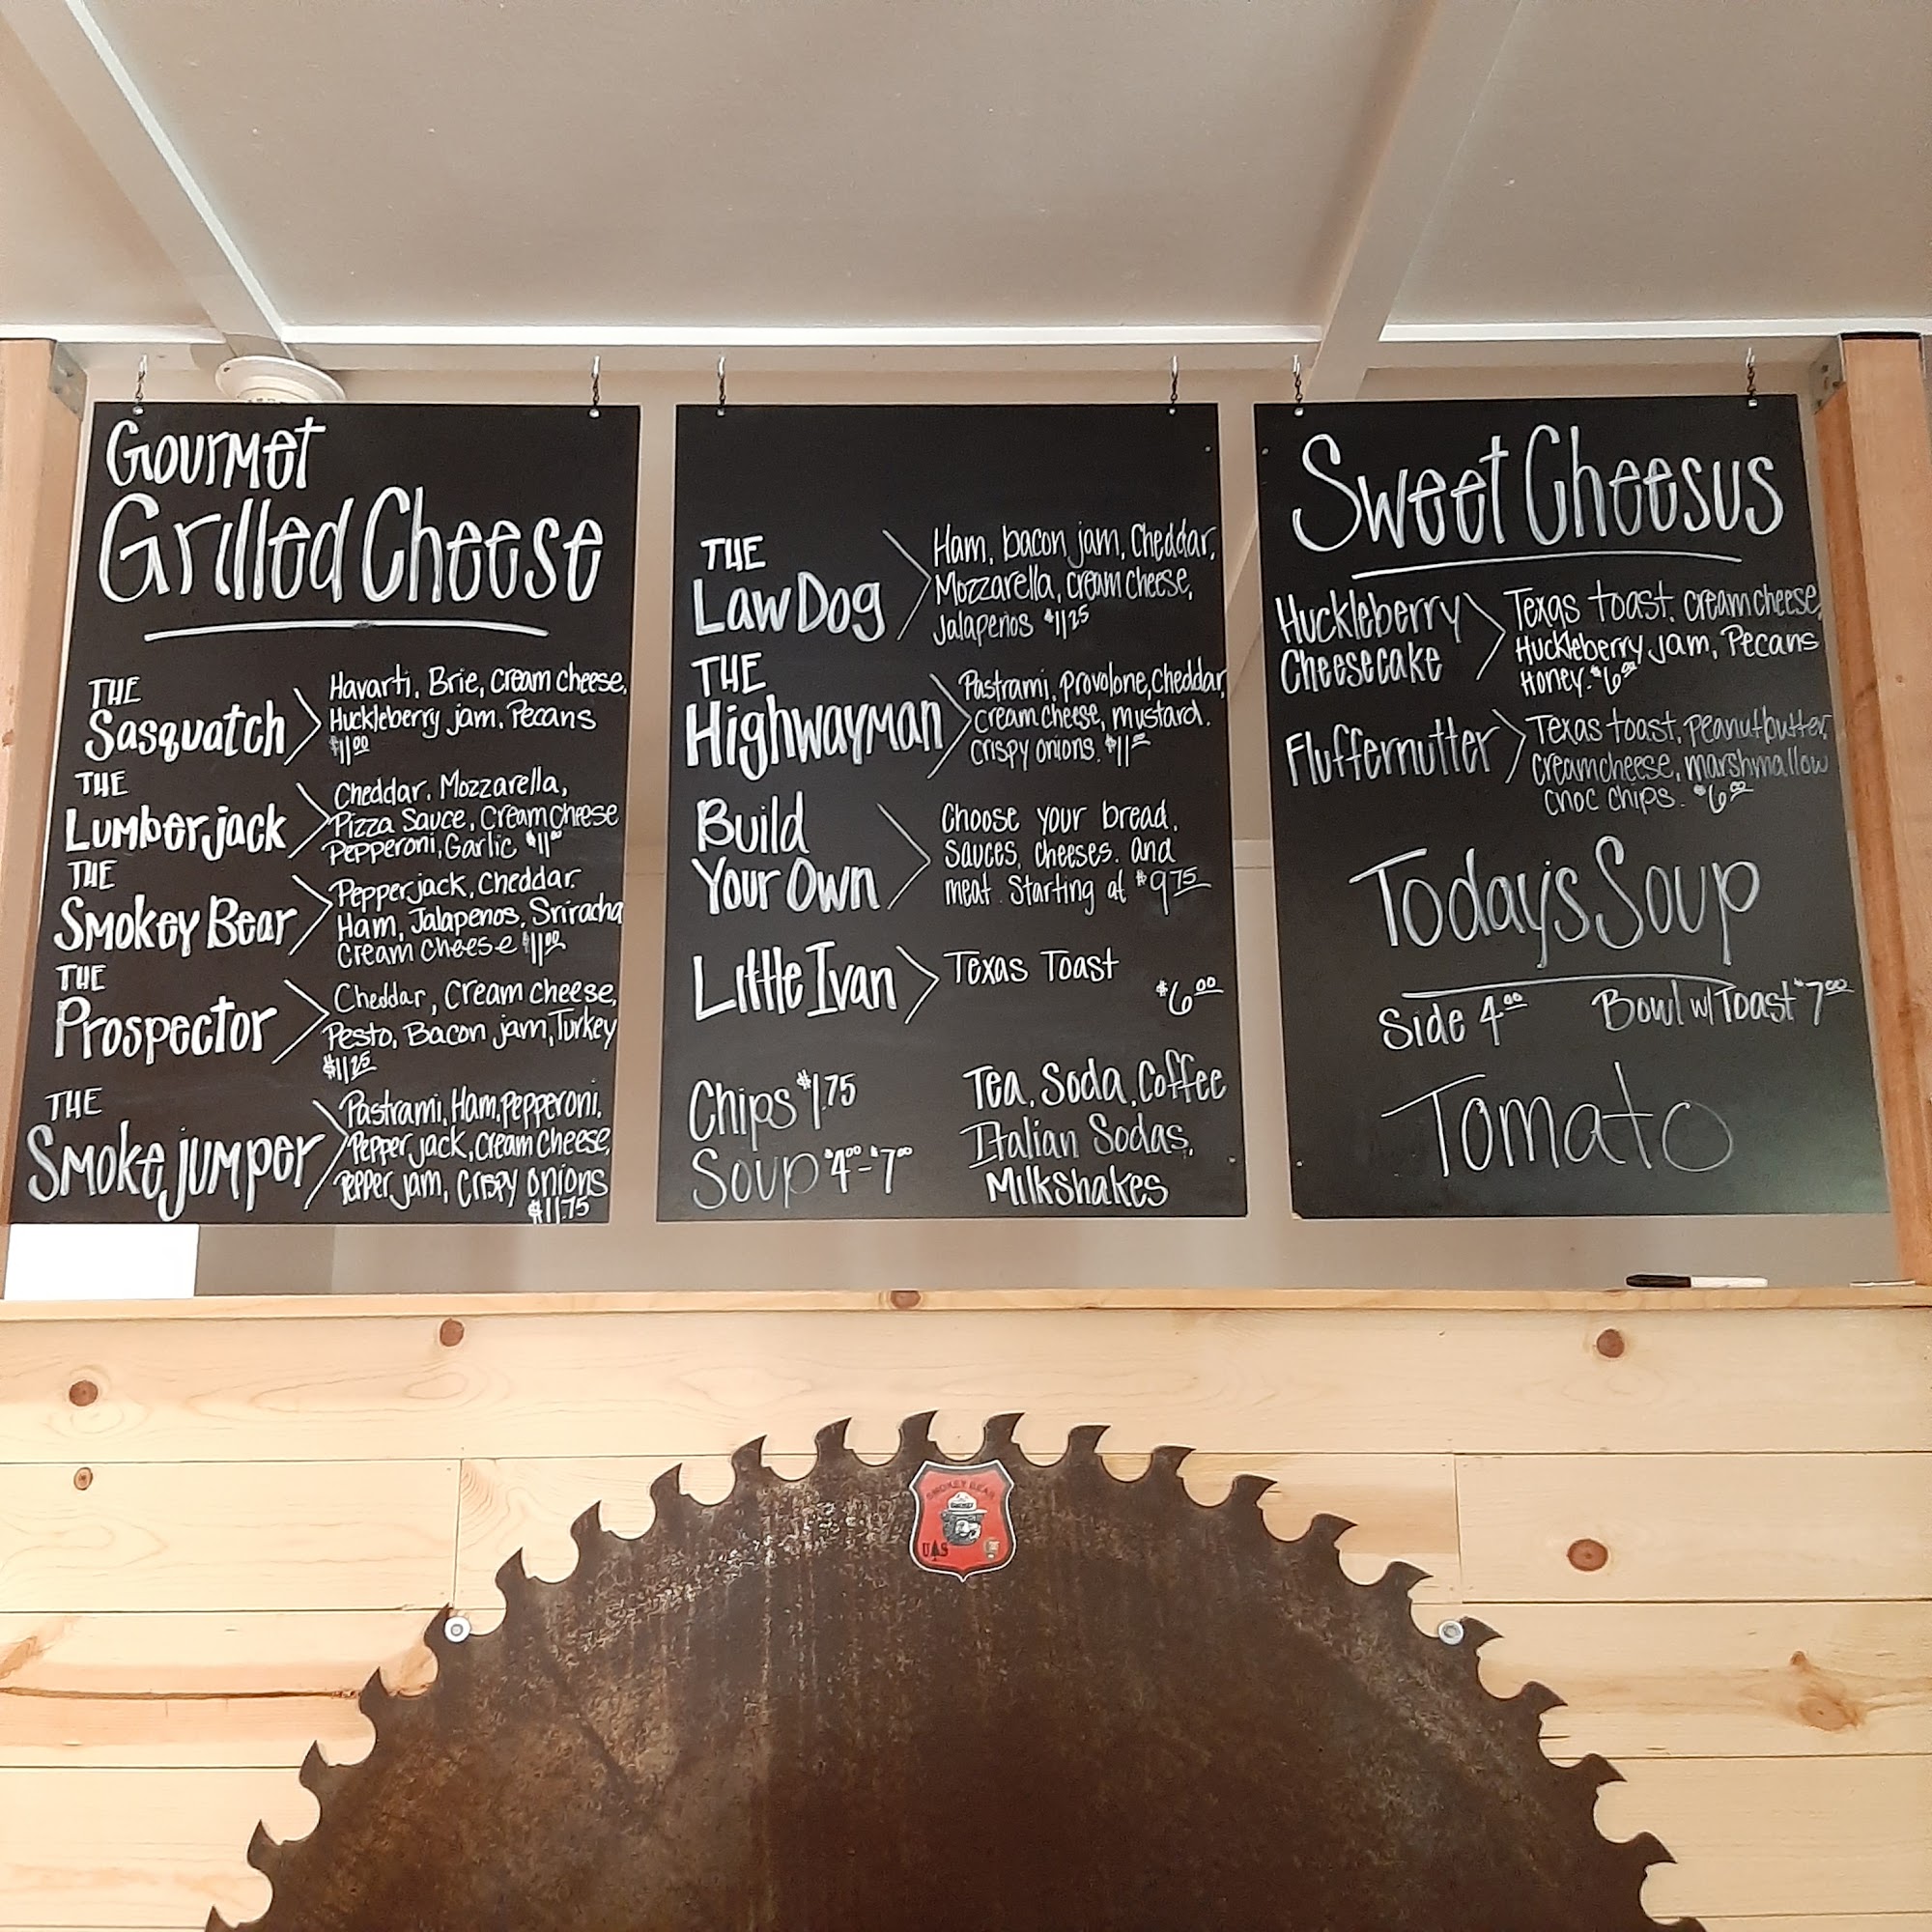 Gourmet
Grilled Cheese
THE
Sasquatch
Havarti, Brie, cream cheese,
Huckleberry jam, Pecans
$11.00
THE
Lumberjack
Cheddar, Mozzarella,
Pizza Sauce, Cream cheese
Pepperoni, Garlic $11.00
THE
Smokey Bear
Pepperjack, Cheddar.
Ham, Jalapenos, Sriracha
Cream cheese $11.00
THE
Prospector
Cheddar, Cream cheese,
Pesto, Bacon jam, Turkey
$11.25
THE
Smokejumper
Pastrami, Ham, Pepperoni,
Pepper jack, cream cheese,
Pepper jam, Crispy onions
$11.75
THE
Law Dog
Ham, bacon jam, Cheddar,
Mozzarella, cream cheese,
Jalapeños $11.25
THE
Highwayman
Pastrami, provolone, cheddar,
cream cheese, mustard.
crispy onions. $11.00
Build
Your Own
Choose your bread,
sauces, cheeses. and
meat. Starting at $9.75
Little Ivan
Texas Toast
$6.00
Chips $1.75
Soup $4.00-$7.00
Tea, Soda, Coffee
Italian Sodas,
Milkshakes
Sweet Cheesus
Huckleberry
Cheesecake
Texas toast, cream cheese,
Huckleberry jam, Pecans
Honey. $6.00
Fluffernutter
Texas toast, peanutbutter,
creamcheese, marshmallow
choc chips. $6.00
Today's Soup
Side 4.00 Bowl w/ Toast $7.00
Tomato
SMOKEY BEAR
U S